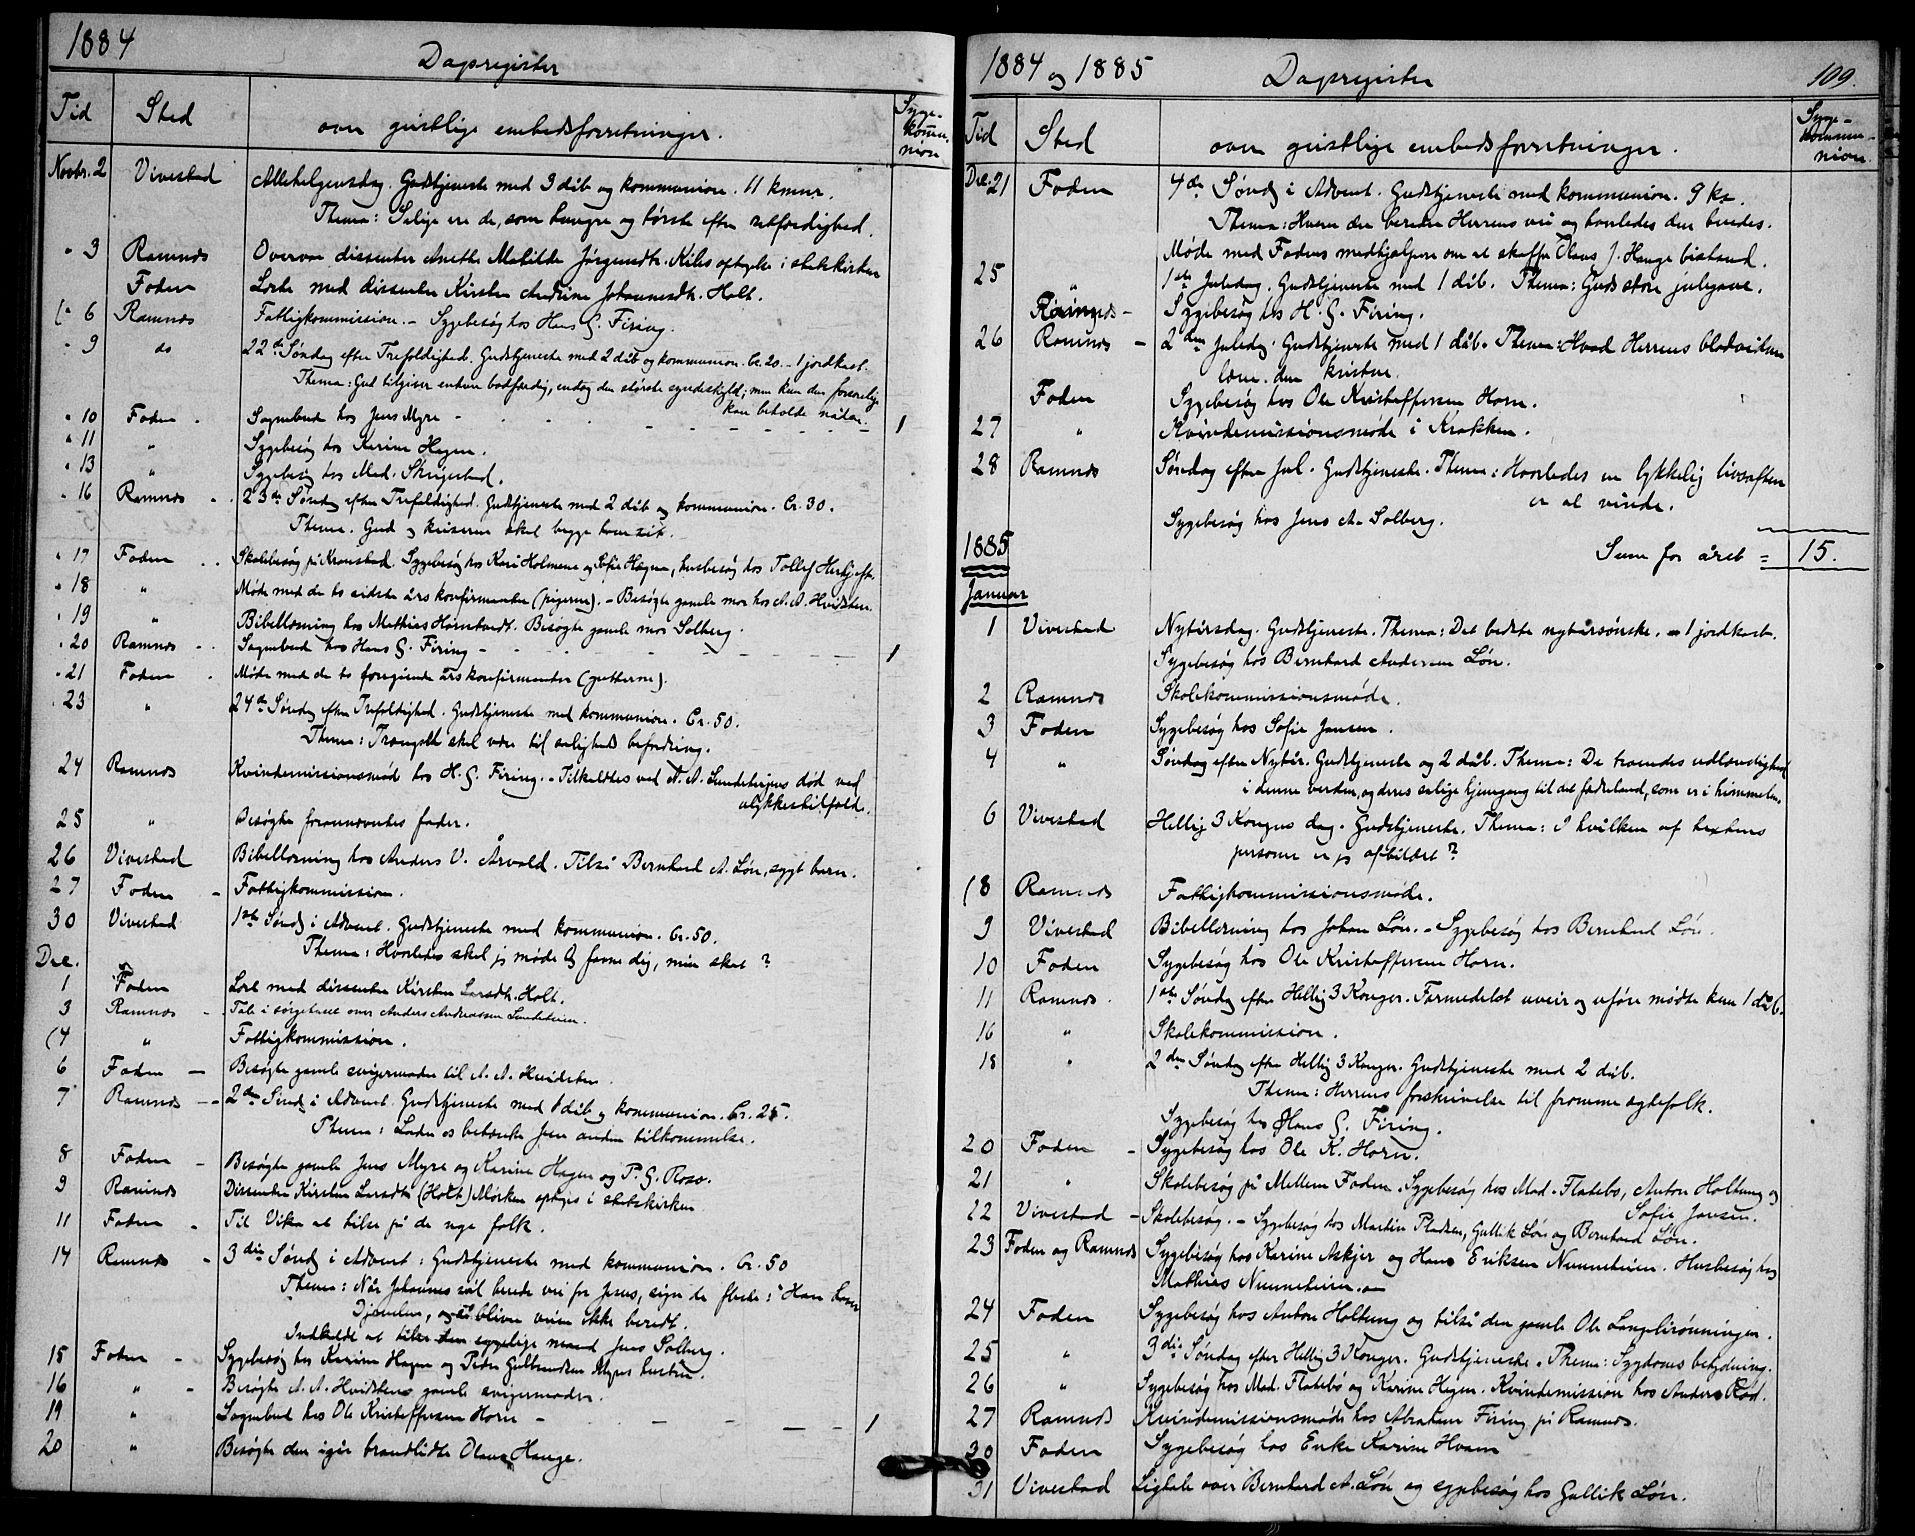 1884
Dagsregister
Tid Sted over geistlige embedsforretninger. Syge-
kommu-
nion
Novbr. 2 Vivestad Allehelgensdag. Gudstjeneste med 3 dåb og kommunion. 11 kmnr.
Thema: Salige ere de, som hungre og tørste efter retfærdighed.
" 3 Ramnes Overvar dissenter Anethe Mathilde Jørgensdtr. Kiles optagelse i statskirken
Foden Læste med dissenter Kirsten Andrine Johannesdtr. Holt.
( " 6 Ramnes Fattigkommission. - Sygebesøg hos Hans G. Firing.
" 9 do 22de Søndag efter Trefoldighed. Gudstjeneste med 2 dåb og kommunion. Cr. 20. - 1 jordkast.
Thema: Gud tilgiver enhver bodfærdig, endog den største syndeskyld; men kun den forsonlige
kan beholde nåden.
" 10 Foden Sognebud hos Jens Myre - 1
" 11 " Sygebesøg hos Karine Hagen.
" 13 " Sygebesøg hos Mad. Skrigestad.
" 16 Ramnes 23de Søndag efter Trefoldighed. Gudstjeneste med 2 dåb og kommunion. Cr. 30.
Thema. Gud og keiseren skal begge have sit.
" 17 Foden Skolebesøg på Kronstad. Sygebesøg hos Kari Holmene og Sofie Hagen, husbesøg hos Tollef
" 18 " Møde med de to sidste års konfirmanter (pigerne). - Besøgte gamle mor hos A. A. Hvidsten.
" 19 " Bibellæsning hos Mathias Horntvedt. Besøgte gamle mor Solberg.
" 20 Ramnes Sognebud hos Hans G. Firing - 1
" 21 Foden Møde med de to foregående års konfirmanter (gutterne).
" 23 " 24de Søndag efter Trefoldighed. Gudstjeneste med kommunion. Cr. 50.
Thema: Trængsel skal være til saligheds befordring.
24 Ramnes Kvindemissionsmøde hos H. G. Firing. - Tilkaldtes ved A. A. død ved
ulykkestilfæld.
25 " Besøgte forannævntes fader.
26 Vivestad Bibellæsning hos Anders V. Årvold. Tilså Bernhard A. Løn, sygt barn.
27 Foden - Fattigkommission.
30 Vivestad 1ste Sønd. i Advent. Gudstjeneste med kommunion. Cr. 50.
Thema: Hvorledes skal jeg møde og favne dig, min skat?
Dec.
1 Foden Læst med dissenter Kirsten Larsdtr. Holt.
3 Ramnes - Tale i sørgehuset over Anders Andreassen
(4 " Fattigkommission.
6 Foden - Besøgte gamle svigermoder til A. A. Hvidsten.
7 Ramnes - 2den Sønd. i Advent. Gudstjeneste med 1 dåb og kommunion. Cr. 25.
Thema: Lader os betænke Jesu anden tilkommelse.
8 Foden - Besøgte gamle Jens Myre og Karine Hagen og P. G. Roso.
9 Ramnes Dissenter Kirsten Larsdtr. (Holt) Mørken optages i statskirken
11 Foden - Til Vika at tilse på de nye folk.
14 Ramnes - 3die Sønd. i Advent: Gudstjeneste med kommunion. Cr. 50
Thema: Når Johannes vil berede vei for Jesus, siger de fleste: "Han haver
Djævelen, og så bliver veien ikke beredt.
Indkaldt at tilse den sygelige mand Jens Solberg.
15 Foden - Sygebesøg hos Karine Hagen og Peder Gulbrandsen Myres hustru.
16 " - Besøgte A. A. Hvidstens gamle svigermoder.
19 " Sognebud hos Ole Kristoffersen Horn - 1
20 " Besøgte den igår brandlidte Olaus Hauge.
1884 og 1885
Dagsregister
109.
Tid Sted over geistlige embedsforretninger. Syge-
kommu-
nion
Dec. 21 Foden 4de Sønd. i Advent. Gudstjeneste med kommunion. 9 kr.
Thema: Hvem der bereder Herrens vei og hvorledes den beredes.
Møde med Fodens medhjælpere om at skaffe Olaus J. Hauge bistand.
25 " 1ste Juledag. Gudstjeneste med 1 dåb. Thema: Guds store julegave.
Ramnes - Sygebesøg hos H. G. Firing.
26 Ramnes - 2den Juledag. Gudstjeneste med 1 dåb. Thema: Hvad Herrens blodvidner
lærer den kristne.
Foden Sygebesøg hos Ole Kristoffersen Horn.
27 " Kvindemissionsmøde i Krakken.
28 Ramnes Søndag efter Jul. Gudstjeneste. Thema: Hvorledes en lykkelig livsaften
er at vinde.
Sygebesøg hos Jens A. Solberg.
Sum for året = 15.
1885
Januar
1 Vivestad Nytårsdag. Gudstjeneste. Thema: Det bedste nytårsønske. - 1 jordkast.
Sygebesøg hos Bernhard Andersen Løn.
2 Ramnes Skolekommissionsmøde.
3 Foden Sygebesøg hos Sofie Jansen.
4 " Søndag efter Nytår. Gudstjeneste og 2 dåb. Thema: De troendes udlændighed
i denne verden, og deres salige hjemgang til det fædreland, som er i himmelen.
6 Vivestad Hellig 3 Kongers dag. Gudstjeneste. Thema: I hvilken af textens
personer er jeg afbildet?
(8 Ramnes Fattigkommissionsmøde.
9 Vivestad Bibellæsning hos Johan Løn. - Sygebesøg hos Bernhard Løn.
10 Foden Sygebesøg hos Ole Kristoffersen Horn.
11 Ramnes 1ste Søndag efter Hellig 3 Konger. Formedelst uveir og uføre mødte kun 1 dåb.
16 " Skolekommission.
18 " 2den Søndag efter Hellig 3 Konger. Gudstjeneste med 2 dåb.
Thema: Herrens forskrivelse til fromme egtefolk.
Sygebesøg hos Hans G. Firing.
20 Foden - Sygebesøg hos Ole K. Horn.
21 " Skolebesøg på Mellem Foden. Sygebesøg hos Mad. Flatebø, Anton Holtung og
Sofie Jansen.
22 Vivestad - Skolebesøg. - Sygebesøg hos Martin Pladsen, Gullik Løn og Bernhard Løn.
23 Foden og Ramnes Sygebesøg hos Karine Askjer og Hans Eriksen Nunneheien. Husbesøg hos
Mathias Nunneheien.
24 Foden Sygebesøg hos Anton Holtung og tilså den gamle Ole Langelirønningen.
25 " 3die Søndag efter Hellig 3 Konger. Gudstjeneste. Thema: Sygdoms betydning.
26 " Sygebesøg hos Mad. Flatebø og Karine Hagen. Kvindemission hos Anders Rød.
27 Ramnes Kvindemissionsmøde hos Abraham Firing på Ramnes.
30 Foden Sygebesøg hos Enke Karine Hvam
31 Vivestad Ligtale over Bernhard A. Løn og sygebesøg hos Gullik Løn.